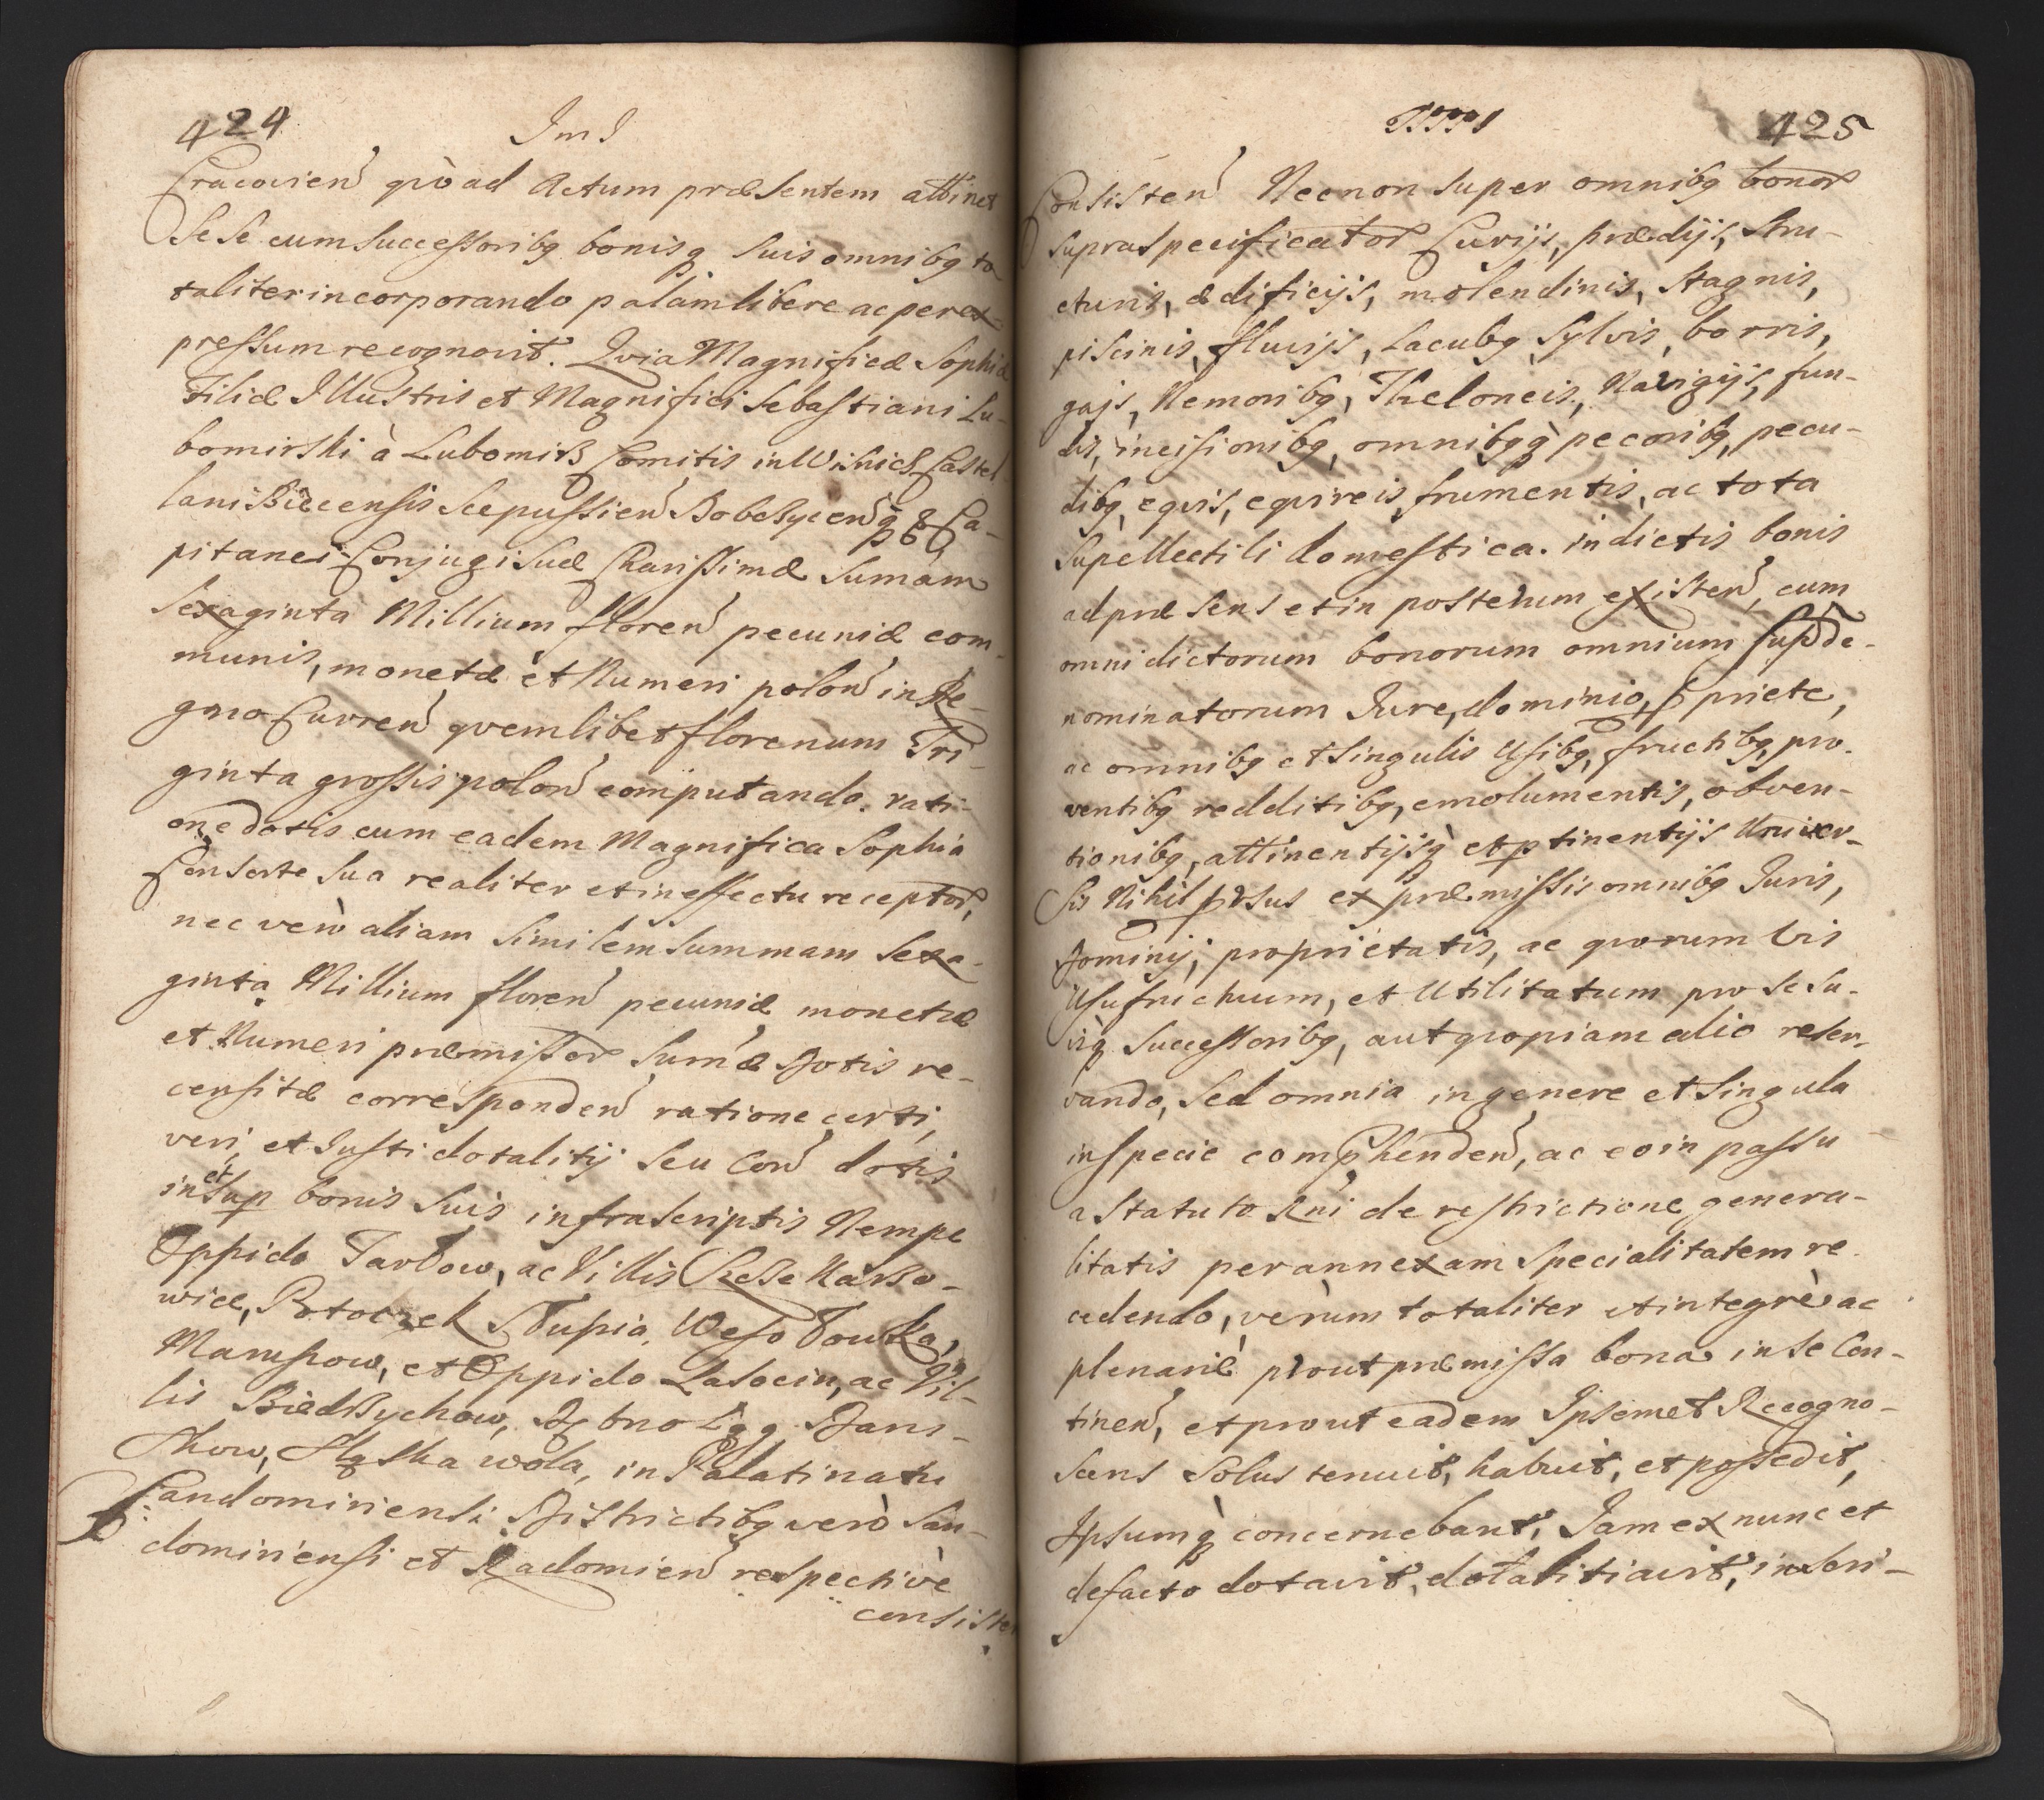 424
ImI
Cracovien qvoad Actum præsentem attinet
sese cum successoribq bonisq suis omnibq to
taliter incorporando palam libere ac per ex-
pressum recognovit. Qvia Magnificæ Sophiæ
Filiæ Illustris et Magnifici Sebastiani Lu-
bomirski à Lubomirz Comitis in Wisnicz Castel
lani Biecensis Scepussien Dobczycen q & Ca-
pitanei Conjugi suæ Charissimæ sumam
sexaginta Millium floren pecuniæ com-
munis, monetæ et Numeri polon in Re-
gno Curren qvemlibet florenum Tri-
ginta grossis polon computando. rati-
one dotis cum eadem Magnifica Sophia
Consorte sua realiter et in effectu receptor,
nec verò aliam similem summam sexa-
ginta Millium floren pecuniæ monetæ
et Numeri præmissor sumæ Dotis re-
censitæ corresponden ratione certi,
veri, et Justi dotalitij seu Con dotis
in et sup bonis suis infrascriptis Nempe
Oppido Tarlow, ac Villis
wice, Potoczek Słupia, Wesołowka,
et Oppido Lasocin, ac Vil-
lis
Wola, in Palatinatu
Sandomiriensi Districtibq verò San-
domiriensi et Radomien respectivè
consisten
425
Consisten Necnon super omnibq bonor
supraspecificator Curijs, prædijs, stru-
cturis, ædificijs, molendinis, stagnis,
piscinis, fluvijs, Lacubq Sylvis, borris,
gajs, Nemoribq, Theloneis, Navigijs, fun-
dis, incisionibq, omnibqq pecoribq, pecu-
dibq, eqvis, eqvireis, frumentis, ac tota
supellectili domestica. in dictis bonis
ad præsens et in posterum existen, cum
omni dictorum bonorum omnium sup de-
nominatorum Jure, dominio, priete,
ac omnibq et singulis Usibq, fructibq, pro-
ventibq redditibq, emolumentis, obven-
tionibq, attinentijsq et ptinentijs Univer-
sis Nihil prsus ex præmissis omnibq Juris,
Dominij, proprietatis, ac qvorumvis
Usufructuum, et Utilitatum pro se su-
isq successoribq, aut qvopiam alio reser-
vando, sed omnia in genere et singula
in specie comphenden, ac eo in passu
a statuto Rni de restrictione genera-
litatis per annexam specialitatem re-
cedendo, verùm totaliter et integrè ac
plenariè prout præmissa bona in se Con-
tinen, et prout eadem Ipsemet Recogno-
scens solus tenuit, habuit, et possedit,
Ipsumq concernebant, Jam ex nunc et
de facto dotavit, dotalitiavit, inscri-